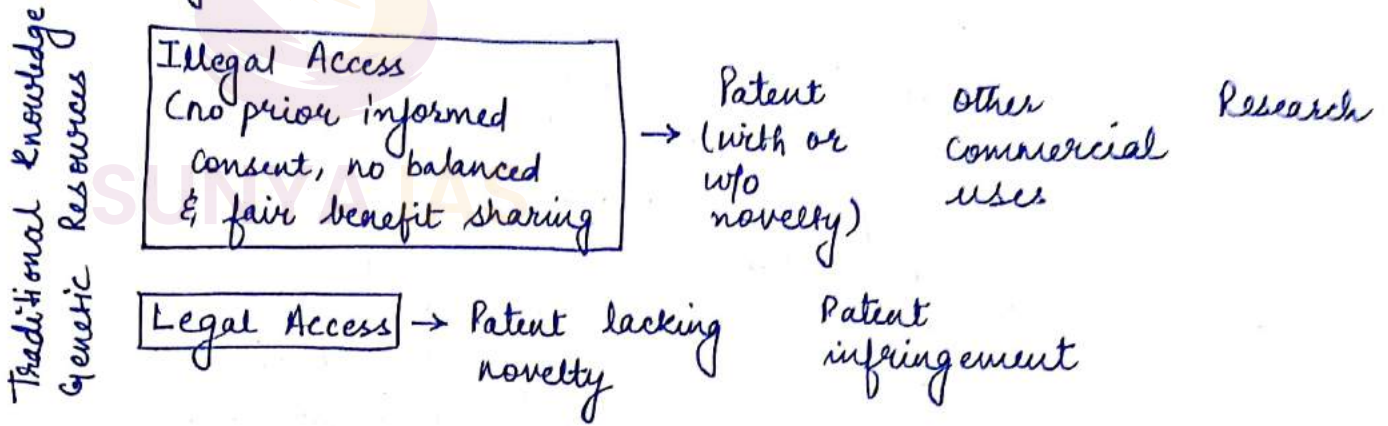 Traditional Knowledge
Genetic Resources
Illegal Access
(no prior informed
consent, no balanced
& fair benefit sharing
→ Patent
(with or
w/o
novelty)
other
commercial
uses
Research
Legal Access → Patent lacking
novelty
Patent
infringement
SUNYA IAS